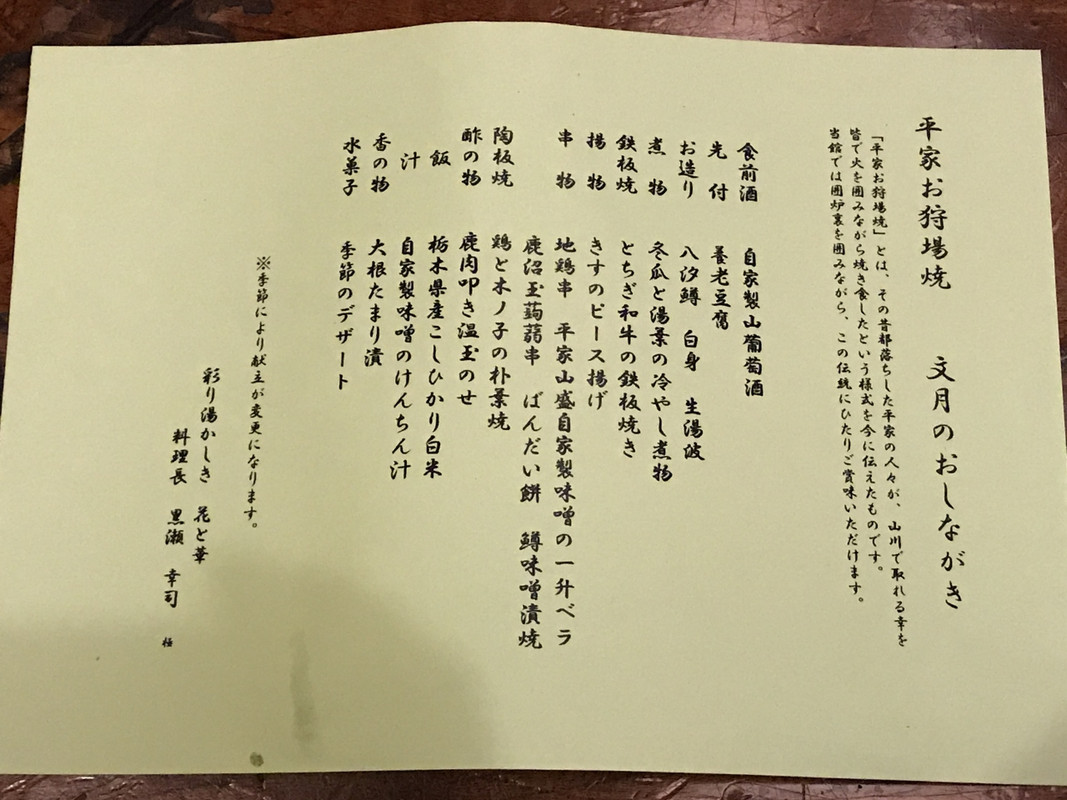 平家お狩場焼　文月のおしながき
「平家お狩場焼」とは、その昔都落ちした平家の人々が、山川で取れる幸を
皆で火を囲みながら焼き食したという様式を今に伝えたものです。
当館では囲炉裏を囲みながら、この伝統にひたりご賞味いただけます。
食前酒　自家製山葡萄酒
先付　養老豆腐
お造り　八汐鱒　白身　生湯波
煮物　冬瓜と湯葉の冷やし煮物
鉄板焼　とちぎ和牛の鉄板焼き
揚物　きすのピース揚げ
串物　地鶏串　平家山盛自家製味噌の一升ベラ
鹿沼玉蒟蒻串　ばんだい餅　鱒味噌漬焼
陶板焼　鶏と木ノ子の朴葉焼
酢の物　鹿肉叩き温玉のせ
飯　栃木県産こしひかり白米
汁　自家製味噌のけんちん汁
香の物　大根たまり漬
水菓子　季節のデザート
※季節により献立が変更になります。
彩り湯かしき　花と華
料理長　黒瀬　幸司